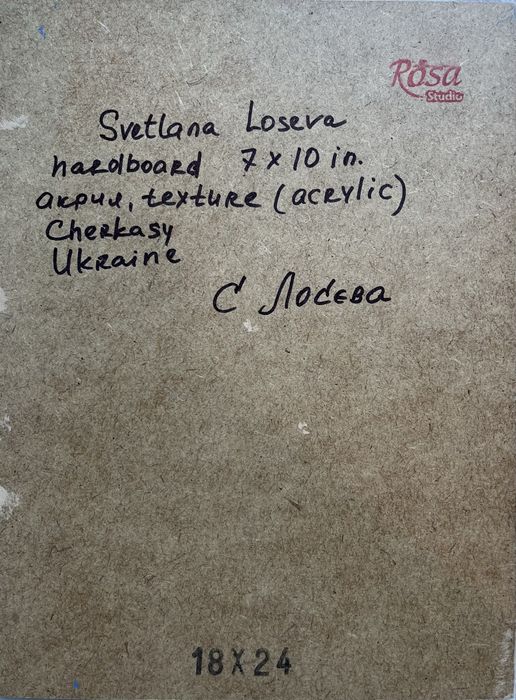 Rosa
Studio
Svetlana Loseva
hardboard 7 x 10 in.
акрил, texture (acrylic)
Cherkasy
Ukraine
С Лосєва
18X24